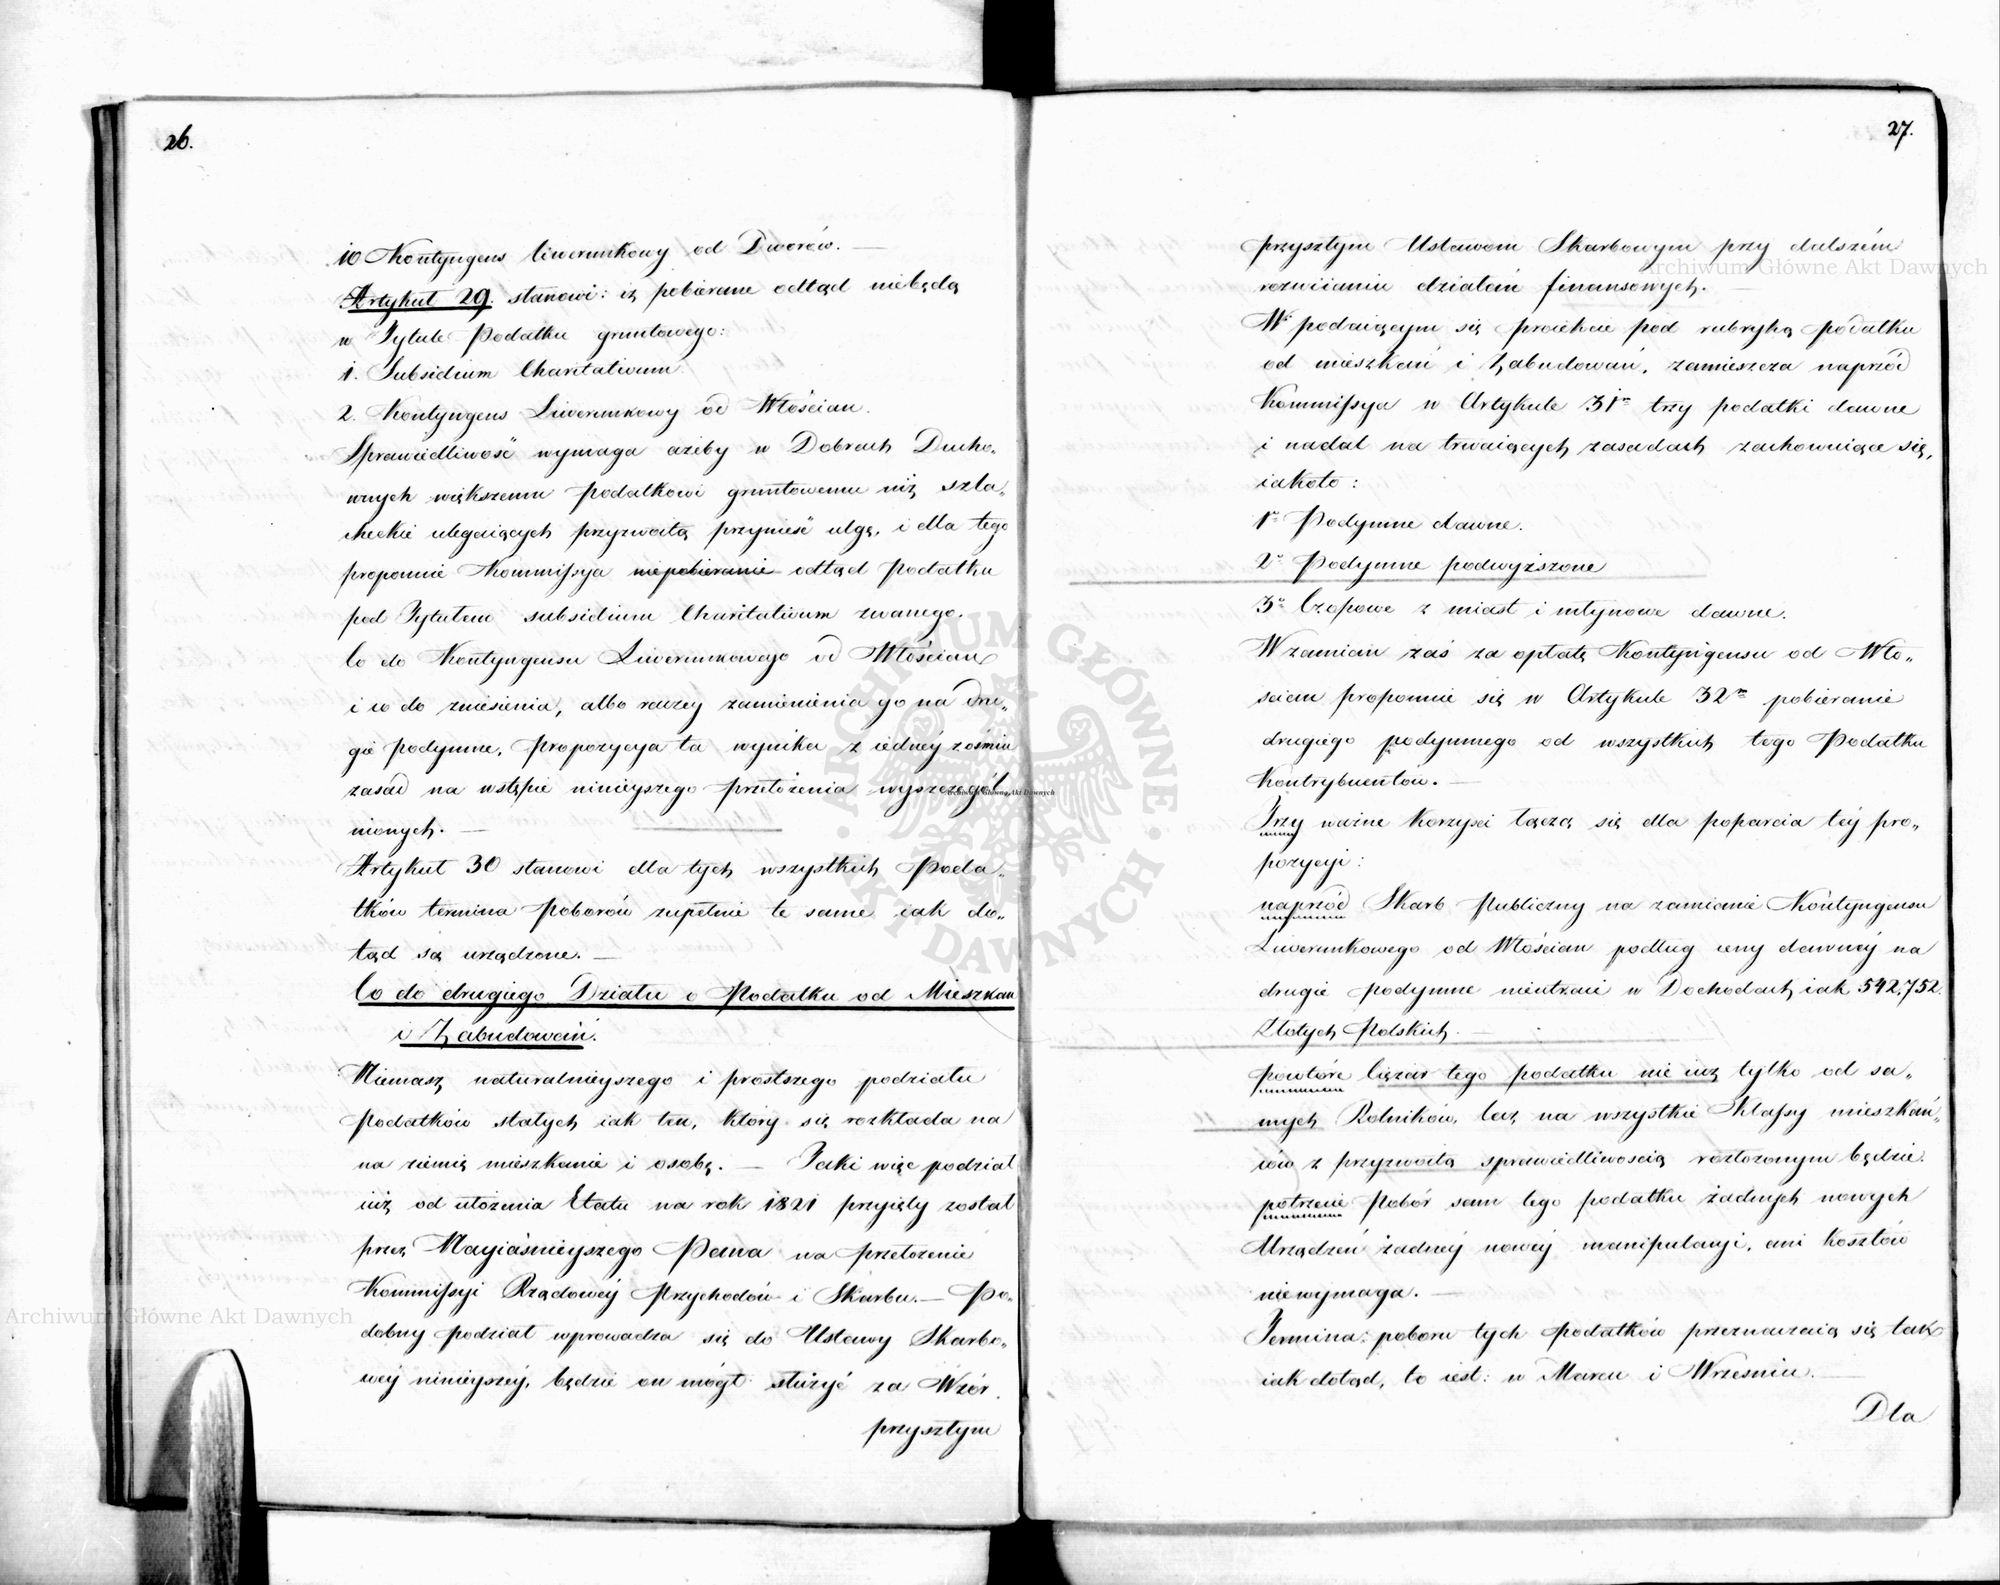 26.
10 Kontyngens liwerunkowy od Dworów. —
Artykuł 29. stanowi: iż pobierane odtąd niebędą
w Tytule Podatku gruntowego:
1. Subsidium Charitativum
2. Kontyngens Liwerunkowy od Włościan.
Sprawiedliwość wymaga ażeby w Dobrach Ducho„
wnych większemu podatkowi gruntowemu niż szla„
checkie ulegaiących przyzwoitą przynieść ulgę, i dla tego
proponuie Kommissya niepobieranie odtąd Podatku
pod Tytułem subsidium Charitativum zwanego.
Co do Kontyngensu Liwerunkowego od Włościan
i co do zniesienia, albo raczey zamienienia go na dru„
gie podymne, propozycya ta wynika z iedney z ośmiu
zasad na wstępie ninieyszego przełożenia wyszczegól
nionych. —
Artykuł 30 stanowi dla tych wszystkich Poda„
tków termina Poborów zupełnie te same iak do„
tąd są urządzone. —
Co do drugiego Działu o Podatku od Mieszkań
i Zabudowań.
Niemasz naturalnieyszego i prostszego podziału
Podatków stałych iak ten, który się rozkłada na
na ziemię mieszkanie i osobę. — Jaki więc podział
iuż od ułożenia Etatu na rok 1821 przyięty został
przez Nayiaśnieyszego Pana na przełożenie
Kommissyi Rządowey Przychodów i Skarbu. — Po„
dobny podział wprowadza się do Ustawy Skarbo„
wey ninieyszey, będzie on mógł służyć za Wzór
przyszłym
27.
przyszłym Ustawom Skarbowym przy dalszém
rozwiianiu działań finansowych. —
W podaiącym się proiekcie pod rubryką podatku
od mieszkań i Zabudowań, zamieszcza naprzód
Kommissya w Artykule 31m trzy podatki dawne
i nadal na trwaiących zasadach zachowuiące się,
iakoto:
1o Podymne dawne.
2o Podymne podwyższone
3o Czopowe z miast i młynowe dawne.
W zamian zaś za opłatę Kontyngensu od Wło„
ścian proponuie się w Artykule 32m pobieranie
drugiego podymnego od wszystkich tego Podatku
Kontrybuentów. —
Trzy ważne korzyści łączą się dla poparcia téy pro„
pozycyi:
naprzód Skarb Publiczny na zamianie Kontyngensu
Liwerunkowego od Włościan podług ceny dawnéy na
drugie podymne nieutraci w Dochodach iak 542,752.
Złotych Polskich. —
powtóre Ciężar tego podatku nie iuż tylko od sa„
mych Rolników, lecz na wszystkie Klassy mieszkań„
ców z przyzwoitą sprawiedliwością rozłożonym będzie.
potrzecie Pobór sam tego podatku żadnych nowych
Urządzeń żadnéy nowéy manipulacyi, ani kosztów
niewymaga. —
Termina: poboru tych Podatków przeznaczaią się tak
iak dotąd, to iest: w Marcu i Wrześniu. —
Dla
Archiwum Główne Akt Dawnych
Archiwum Główne Akt Dawnych
Archiwum Główne Akt Dawnych
ARCHIWUM GŁÓWNE · AKT DAWNYCH ·